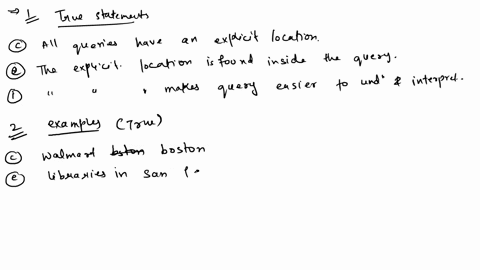 ⇒ 1 True statements
c All queries have an explicit location.
e The explicit location is found inside the query.
f " " " makes query easier to und' & interpret.
2 examples (True)
c walmart boston
e libraries in san